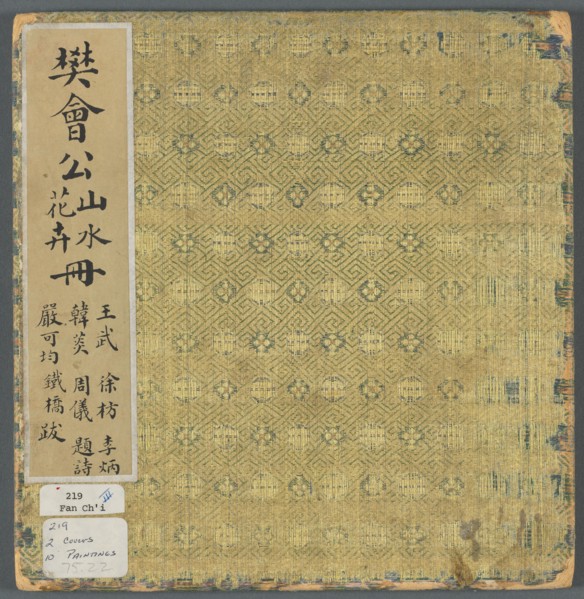 樊會公
山水
花卉
冊
王武 徐枋 李炳
韓菼 周儀 題詩
嚴可均 鐵橋 跋
219 III
Fan Ch'i
219
2 COVERS
10 PAINTINGS
75.22